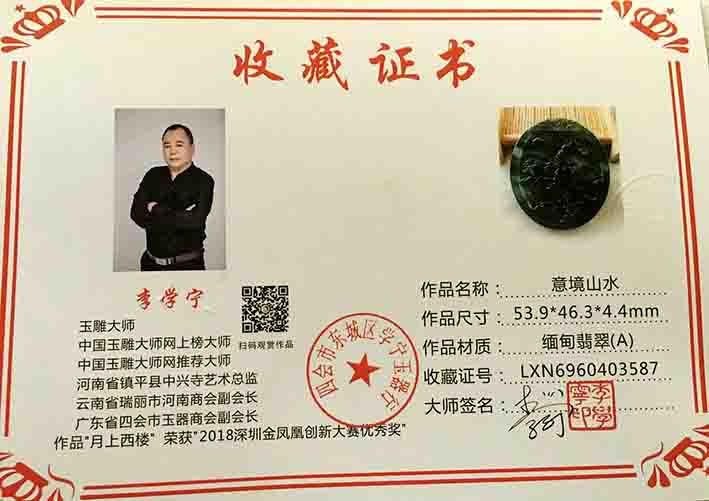 收藏证书
李学宁
玉雕大师
中国玉雕大师网上榜大师
中国玉雕大师网推荐大师
河南省镇平县中兴寺艺术总监
云南省瑞丽市河南商会副会长
广东省四会市玉器商会副会长
作品"月上西楼" 荣获"2018深圳金凤凰创新大赛优秀奖"
扫码观赏作品
四会市东城区学宁玉器行
作品名称: 意境山水
作品尺寸: 53.9*46.3*4.4mm
作品材质: 缅甸翡翠(A)
收藏证号: LXN6960403587
大师签名:
李學寧印